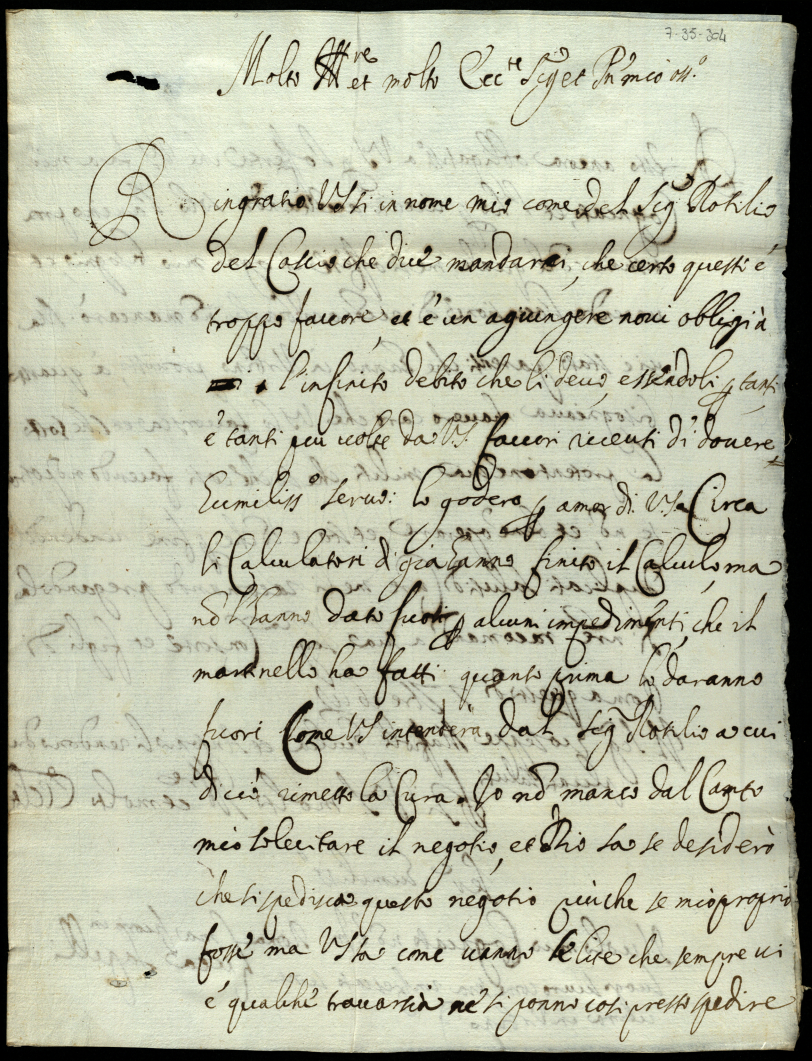 7-35-304
Molto Ill.re et molto Ecc.te Sig et Pñ mio oss.o
Ringratio VS si in nome mio come del Sig Rotilio
del Cascio che dice mandarci, che certo questi é
troppo favore, et é un agiungere novi obblighi à
l'infinito debito che li devo, essendoli p tanti
é tanti piu volte da VS favori ricevuti di dovere
humiliss.o servo: lo godero p amor di VS. Circa
li Calculatori di gia hanno finito il Calculo, ma
nõ l'hanno dato fuori p alcuni impedimenti, che il
martinello ha fatti quanto prima lo daranno
fuori Come VS intenderà dal Sig Rotilio a cui
di ció rimetto la Cura. Io nõ manco dal Canto
mio solecitare il negotio, et Dio sa se desiderò
che si spedisca questo negotio piu che se mio proprio
fosse ma VS sa come vanno le lite che sempre vi
é qualche traversia né si ponno cosi presto spedire